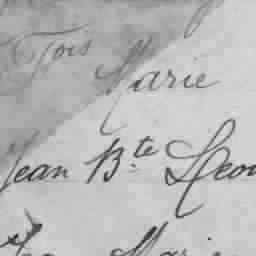 Fois Marie
Jean B.te Leon
Marie